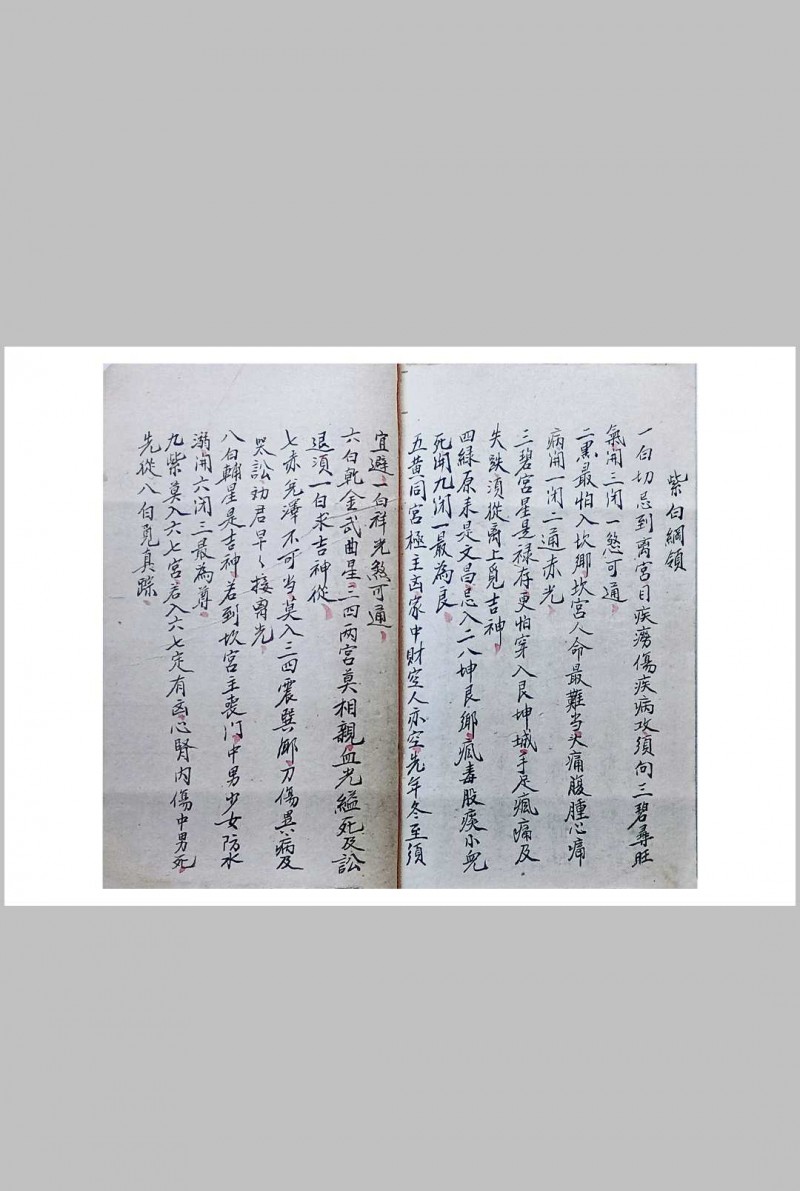 紫白綱領
一白切忌到离宮目疾癆傷疾病攻須向三碧尋旺
氣開三闭一煞可通
二黑最怕入坎鄉坎宮人命最難当头痛腹腫心痛
病開一闭二通赤光
三碧宮星是禄存更怕穿入艮坤城手足瘋痛及
失跌須從离上覓吉神
四緑原来是文昌忌入二八坤艮鄉瘋毒股痰小兒
死開九闭一最為良
五黄同宮極主凶家中財空人亦空先年冬至須
宜避一白祥光煞可通
六白乾金武曲星三四两宮莫相親血光縊死及訟
退須一白求吉神從
七赤兑澤不可当莫入三四震巽鄉刀傷異病及
哭訟劝君早々接胃光
八白輔星是吉神若到坎宮主丧门中男少女防水
溺開六闭三最為尊
九紫莫入六七宮若入六七定有凶心腎内傷中男死
先從八白覓真踪